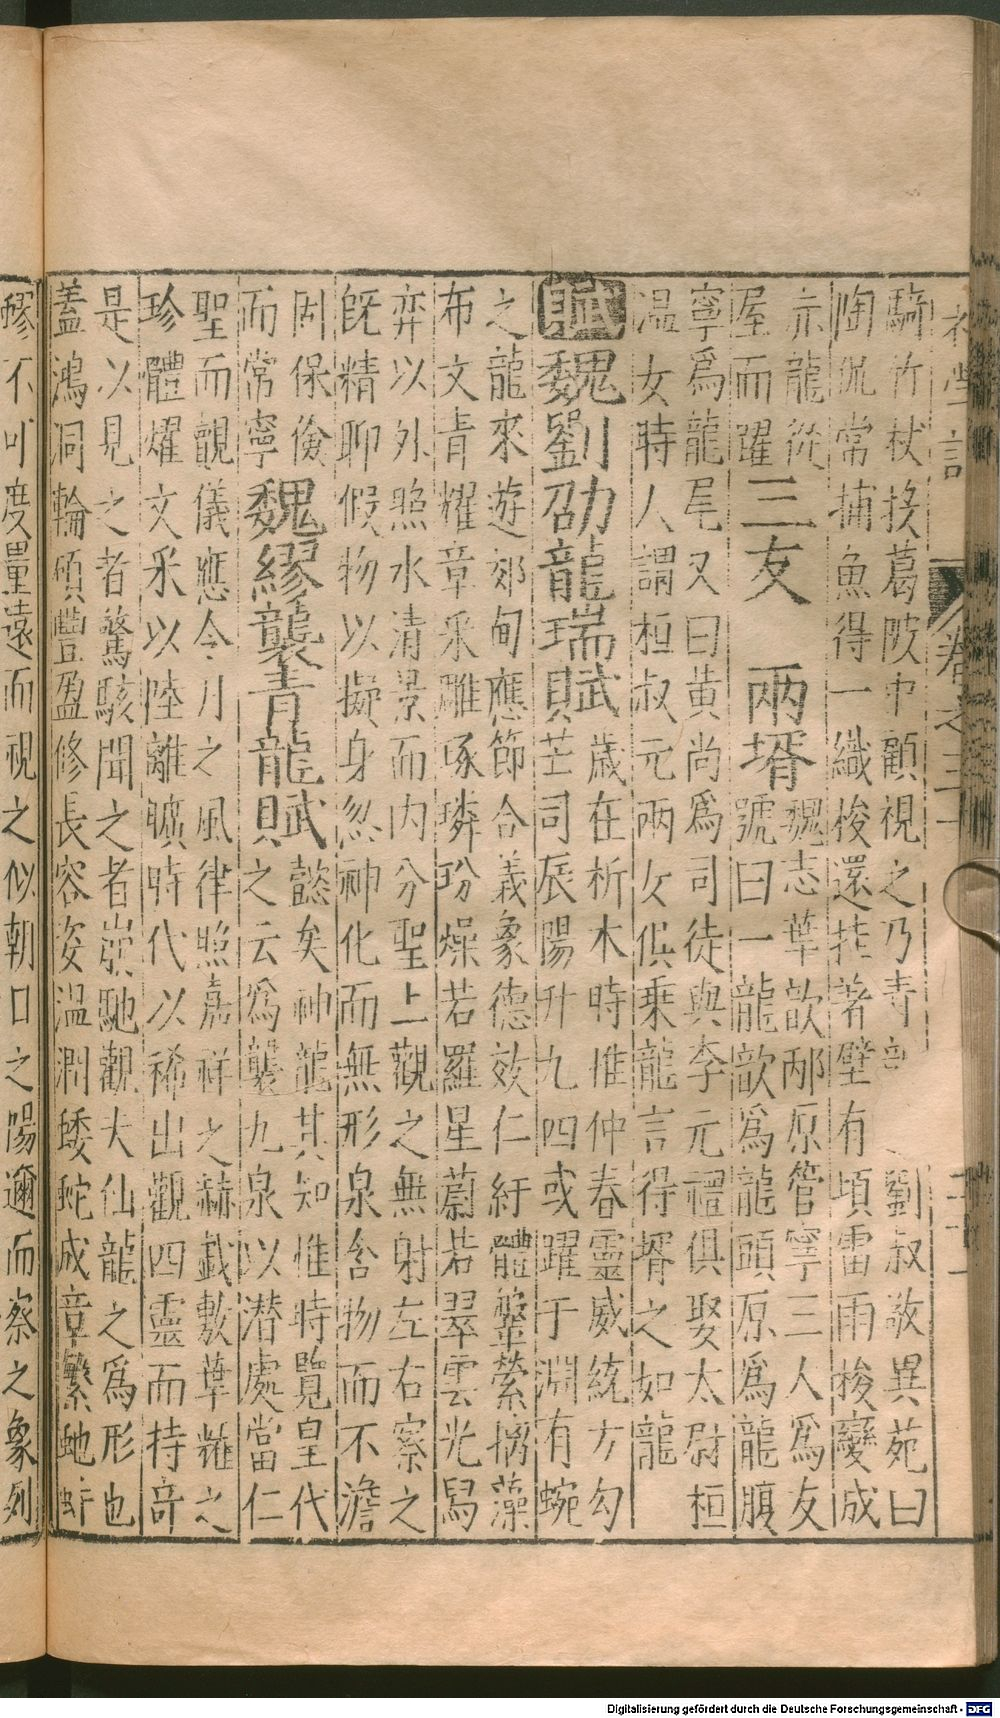 初學記 卷之三十 十二
騎竹杖投葛陂中顧視之乃青 劉叔敬異苑曰
陶侃常捕魚得一織梭還挂著壁有頃雷雨梭變成
赤龍從屋而躍
三友 兩壻
魏志華歆邴原管寧三人為友
號曰一龍歆為龍頭原為龍腹
寧為龍尾又曰黃尚為司徒與李元禮俱娶太尉桓
溫女時人謂桓叔元兩女俱乘龍言得壻之如龍
賦
魏劉劭龍瑞賦
歲在析木時惟仲春靈威統方勾
芒司辰陽升九四或躍于淵有蜿
之龍來遊郊甸應節合義象德效仁紆體鞶縈摛藻
布文青耀章采雕琢璘玢燥若羅星蔚若翠雲光舄
弈以外照水清景而内分聖上觀之無射左右察之
既精聊假物以擬身忽神化而無形泉含物而不澹
固保儉而常寧
魏繆襲青龍賦
懿矣神龍其知惟時覽皇代
之云為襲九泉以潜處當仁
聖而觀儀應令月之風律照嘉祥之赫戲敷華耀之
珍體燿文采以陸離曠時代以稀出觀四靈而持奇
是以見之者驚駭聞之者崩馳觀夫仙龍之為形也
蓋鴻洞輪碩豐盈修長容姿温潤蜲蛇成章繁虵虯
繆不可度量遠而視之似朝日之陽邇而察之象列
Digitalisierung gefördert durch die Deutsche Forschungsgemeinschaft - DFG